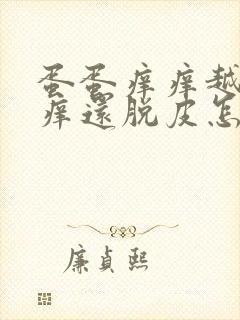 蛋蛋痒痒越
痒還脱皮怎
廉貞熙